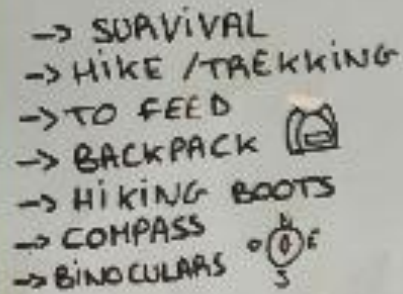 -> SURVIVAL
-> HIKE / TREKKING
-> TO FEED
-> BACKPACK
-> HIKING BOOTS
-> COMPASS
N
O E
-> BINOCULARS
S